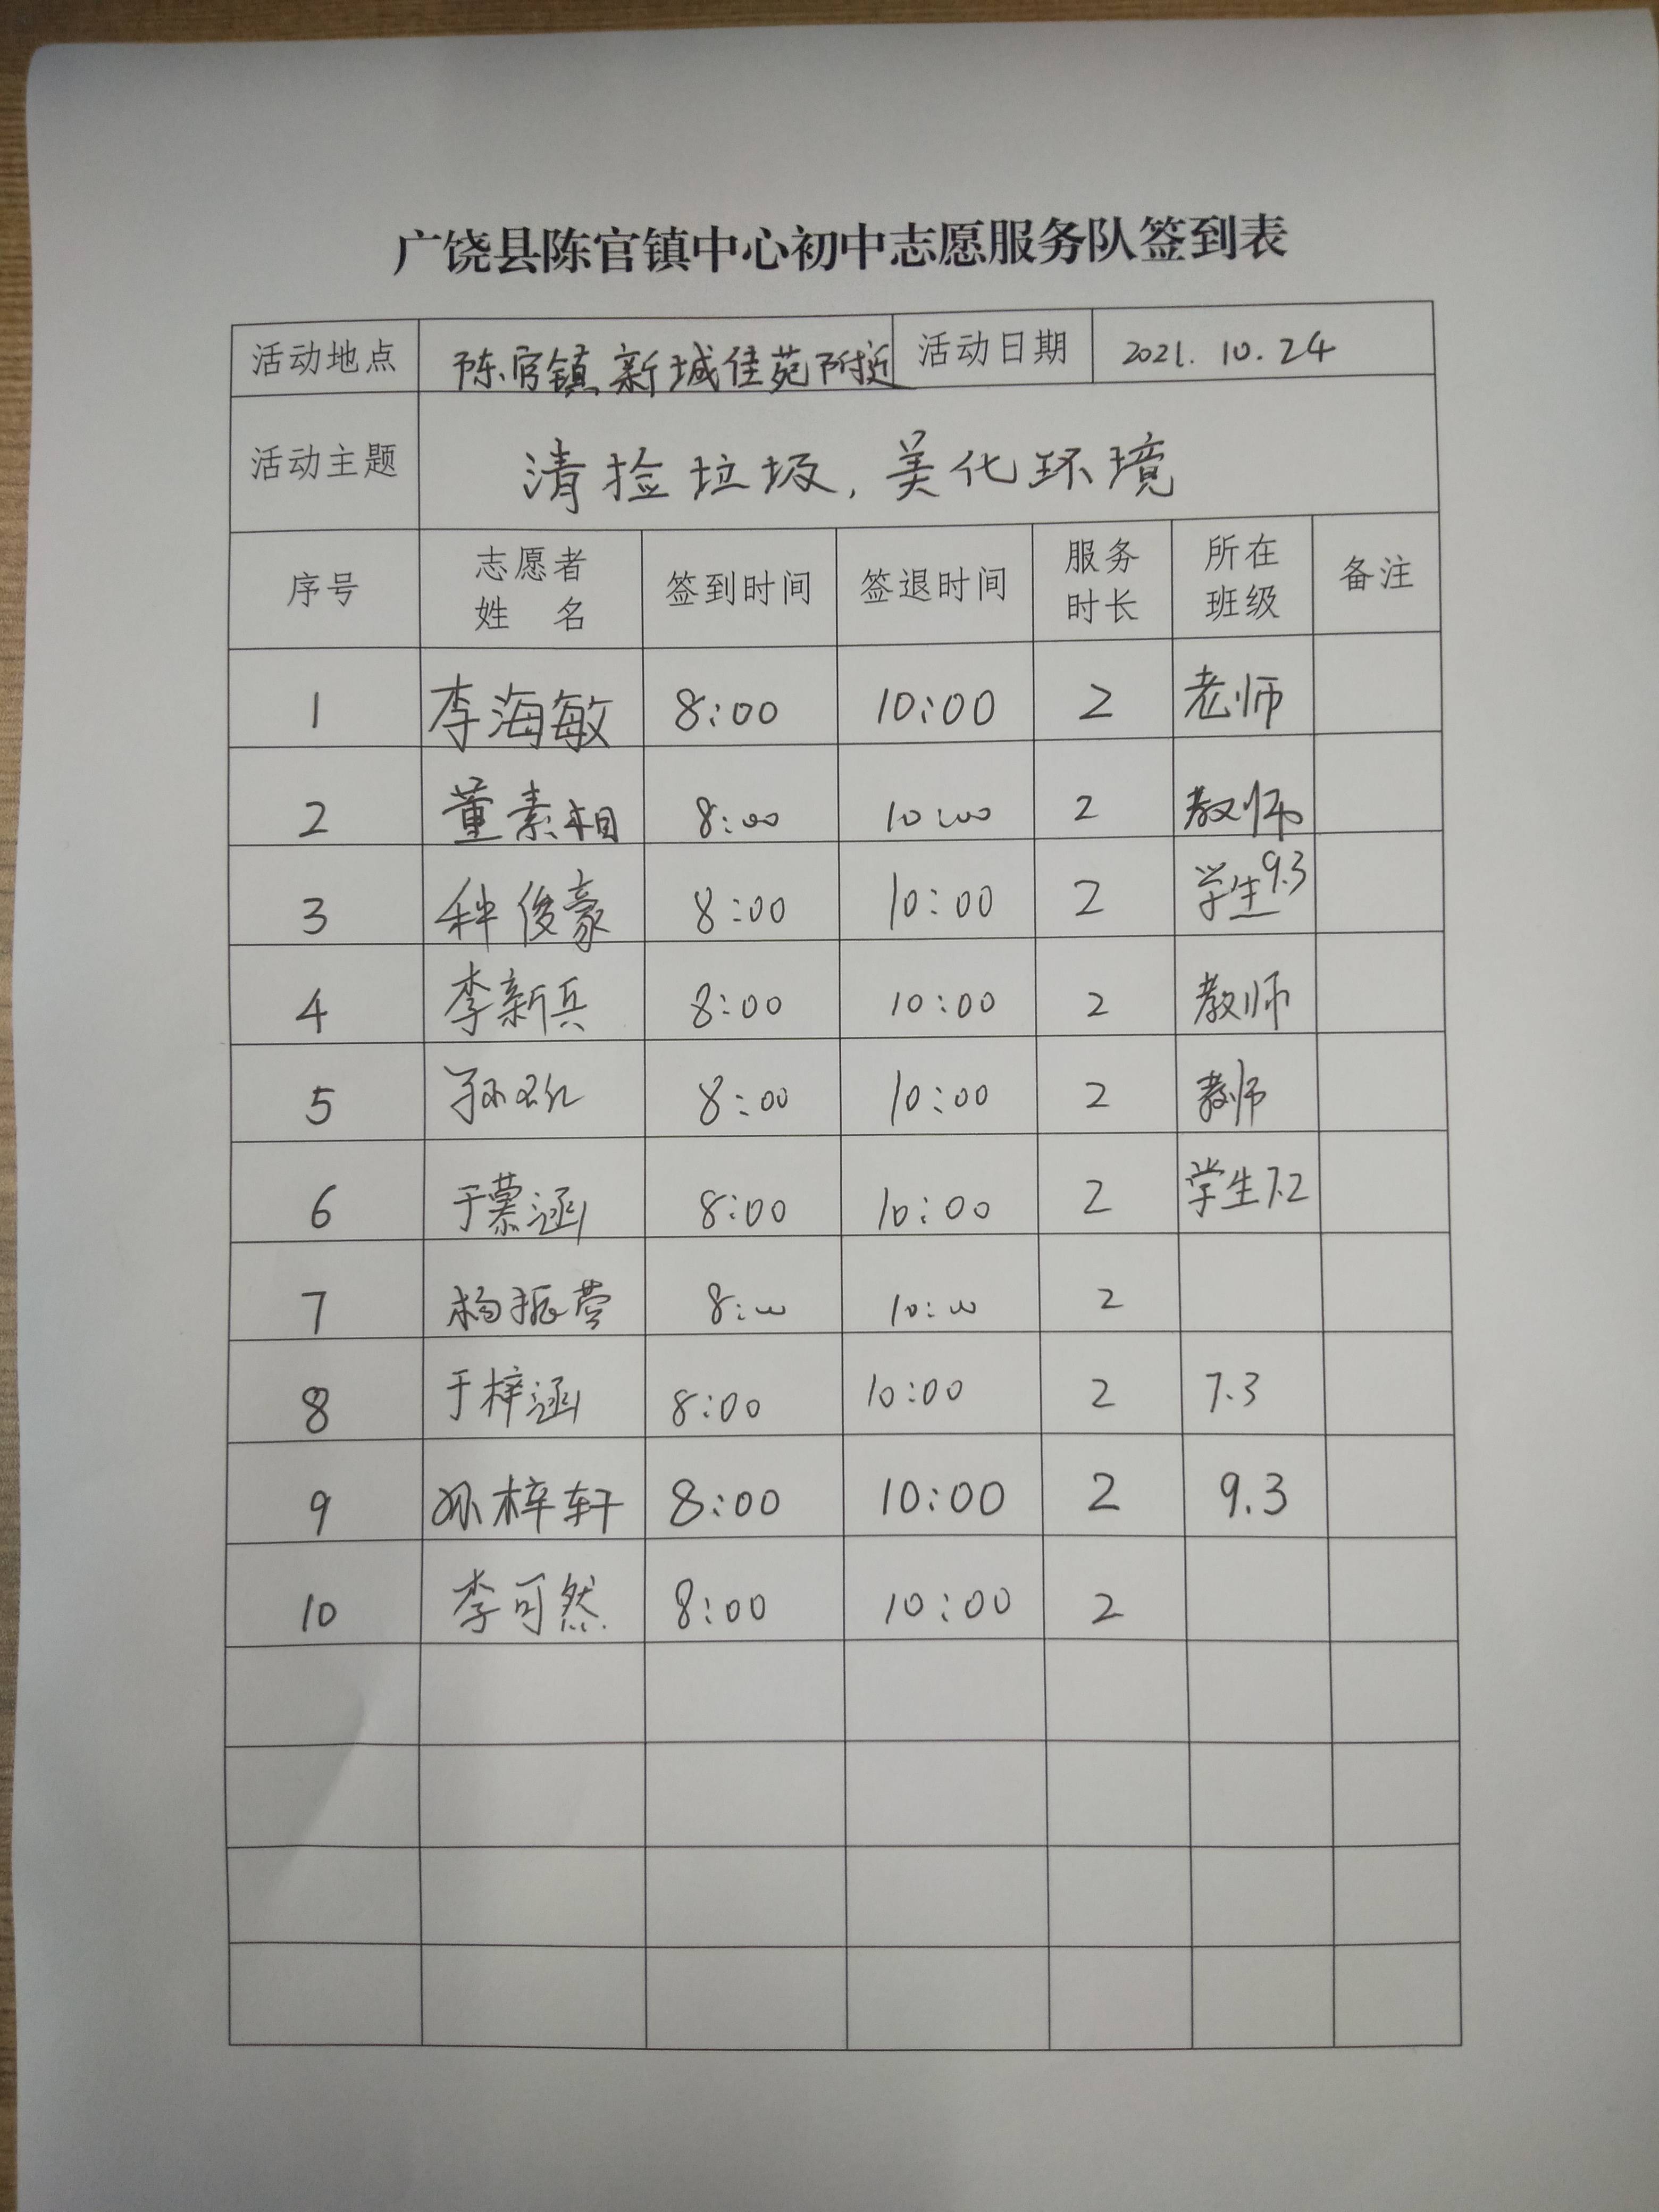 广饶县陈官镇中心初中志愿服务队签到表
活动地点 陈官镇新城佳苑附近 活动日期 2021.10.24
活动主题 清捡垃圾,美化环境
序号 志愿者姓 名 签到时间 签退时间 服务时长 所在班级 备注
1 李海敏 8:00 10:00 2 老师
2 董素相 8:00 10:00 2 教师
3 种俊豪 8:00 10:00 2 学生9.3
4 李新兵 8:00 10:00 2 教师
5 孙 8:00 10:00 2 教师
6 于慕涵 8:00 10:00 2 学生7.2
7 杨振营 8:00 10:00 2
8 于梓涵 8:00 10:00 2 7.3
9 孙梓轩 8:00 10:00 2 9.3
10 李可然 8:00 10:00 2